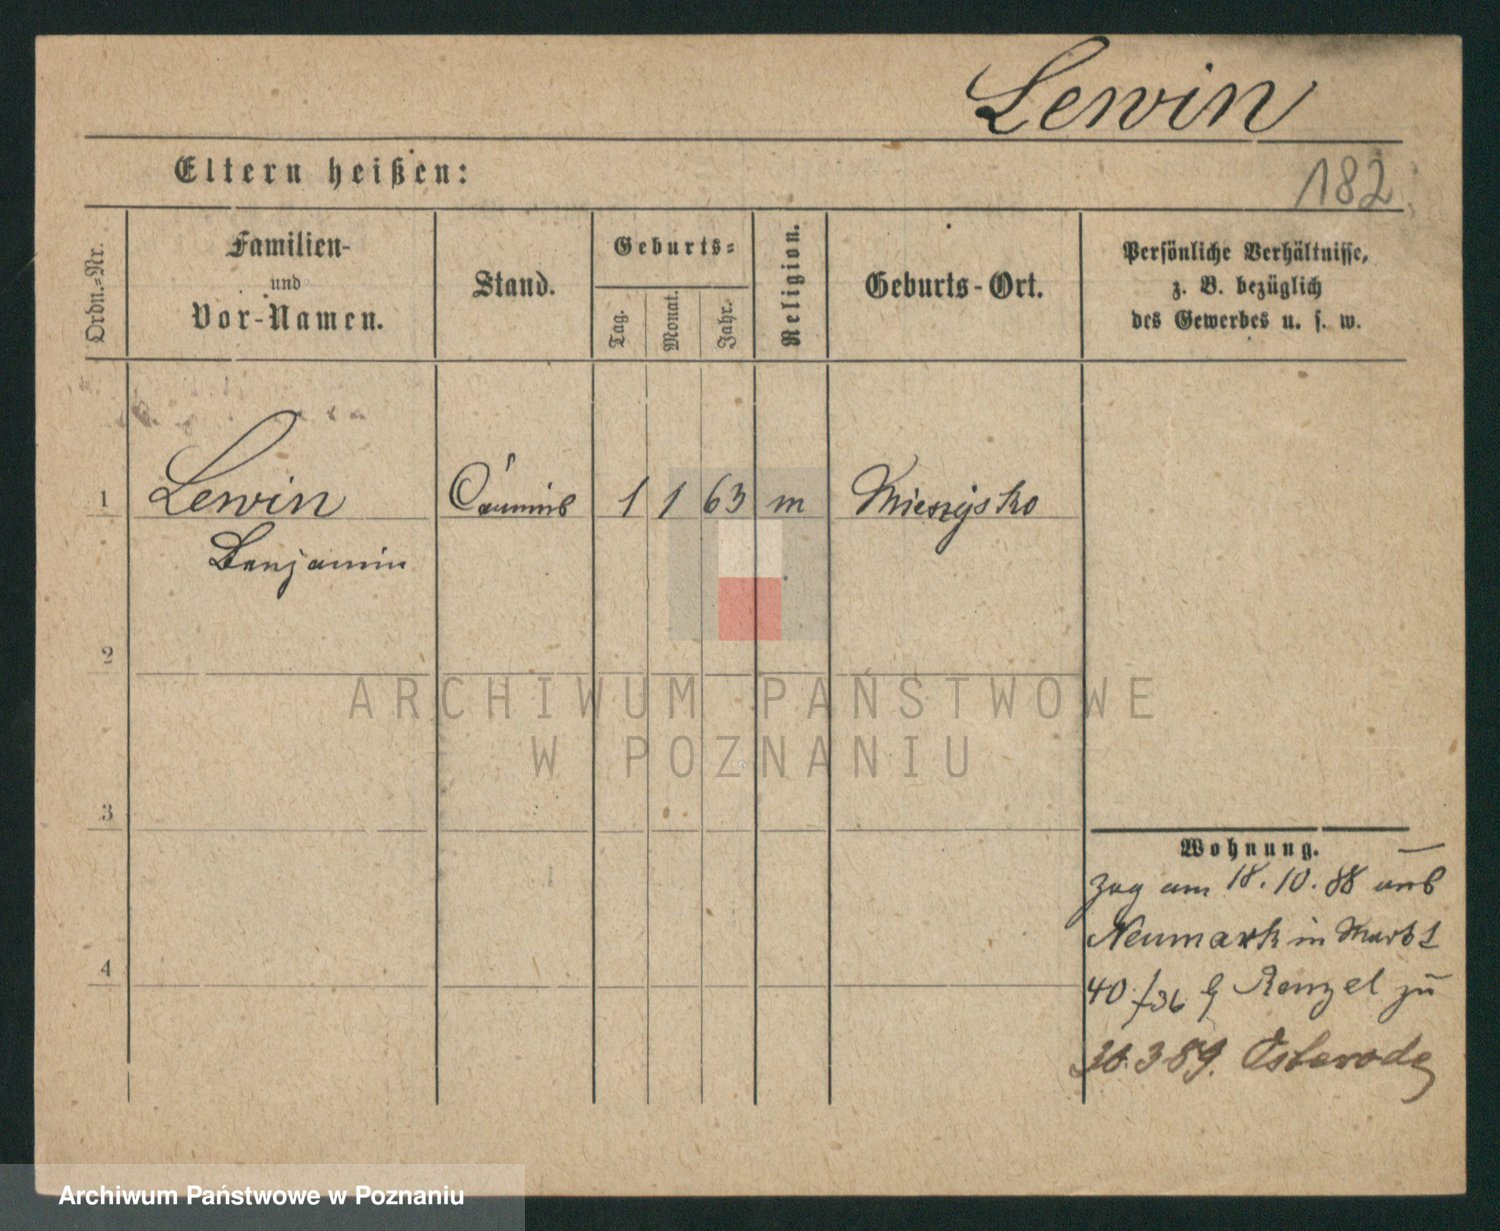 Lewin
Eltern heißen:
182
Ordn.-Nr.
Familien-
und
Vor-Namen.
Stand.
Geburts-
Tag.
Monat.
Jahr.
Religion.
Geburts-Ort.
Persönliche Verhältnisse,
z. B. bezüglich
des Gewerbes u. s. w.
1 Lewin Commis 1 1 63 m Miescisko
Benjamin
2
ARCHIWUM PAŃSTWOWE
W POZNANIU
3
Wohnung.
zog am 18.10.88 aus
Neumark in Markt
4
40/36 Renzel zu
30.3 89. Osterode
Archiwum Państwowe w Poznaniu